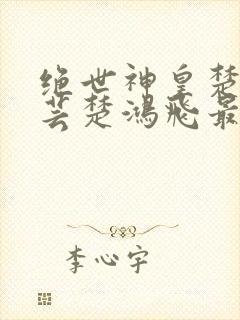 绝世神皇楚
芸楚鸿飞最
李心宇